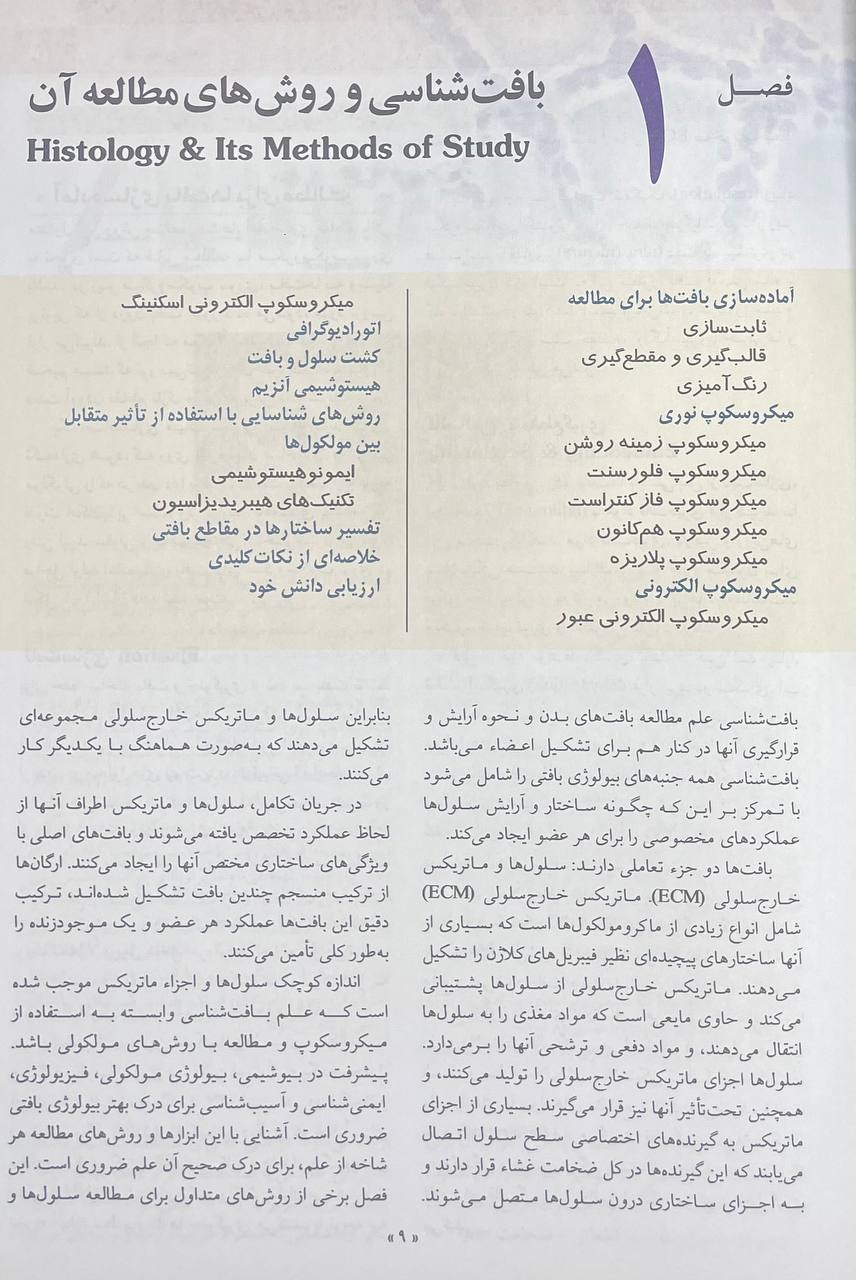 فصل
۱
بافت‌شناسی و روش‌های مطالعه آن
Histology & Its Methods of Study
آماده‌سازی بافت‌ها برای مطالعه
ثابت‌سازی
قالب‌گیری و مقطع‌گیری
رنگ‌آمیزی
میکروسکوپ نوری
میکروسکوپ زمینه روشن
میکروسکوپ فلورسنت
میکروسکوپ فاز کنتراست
میکروسکوپ هم‌کانون
میکروسکوپ پلاریزه
میکروسکوپ الکترونی
میکروسکوپ الکترونی عبور
میکروسکوپ الکترونی اسکنینگ
اتورادیوگرافی
کشت سلول و بافت
هیستوشیمی آنزیم
روش‌های شناسایی با استفاده از تأثیر متقابل
بین مولکول‌ها
ایمونوهیستوشیمی
تکنیک‌های هیبریدیزاسیون
تفسیر ساختارها در مقاطع بافتی
خلاصه‌ای از نکات کلیدی
ارزیابی دانش خود
بافت‌شناسی علم مطالعه بافت‌های بدن و نحوه آرایش و
قرارگیری آنها در کنار هم برای تشکیل اعضاء می‌باشد.
بافت‌شناسی همه جنبه‌های بیولوژی بافتی را شامل می‌شود
با تمرکز بر این که چگونه ساختار و آرایش سلول‌ها
عملکردهای مخصوصی را برای هر عضو ایجاد می‌کند.
بافت‌ها دو جزء تعاملی دارند: سلول‌ها و ماتریکس
خارج‌سلولی (ECM). ماتریکس خارج‌سلولی (ECM)
شامل انواع زیادی از ماکرومولکول‌ها است که بسیاری از
آنها ساختارهای پیچیده‌ای نظیر فیبریل‌های کلاژن را تشکیل
می‌دهند. ماتریکس خارج‌سلولی از سلول‌ها پشتیبانی
می‌کند و حاوی مایعی است که مواد مغذی را به سلول‌ها
انتقال می‌دهند، و مواد دفعی و ترشحی آنها را برمی‌دارد.
سلول‌ها اجزای ماتریکس خارج‌سلولی را تولید می‌کنند، و
همچنین تحت‌تأثیر آنها نیز قرار می‌گیرند. بسیاری از اجزای
ماتریکس به گیرنده‌های اختصاصی سطح سلول اتصال
می‌یابند که این گیرنده‌ها در کل ضخامت غشاء قرار دارند و
به اجزای ساختاری درون سلول‌ها متصل می‌شوند.
بنابراین سلول‌ها و ماتریکس خارج‌سلولی مجموعه‌ای
تشکیل می‌دهند که به‌صورت هماهنگ با یکدیگر کار
می‌کنند.
در جریان تکامل، سلول‌ها و ماتریکس اطراف آنها از
لحاظ عملکرد تخصص یافته می‌شوند و بافت‌های اصلی با
ویژگی‌های ساختاری مختص آنها را ایجاد می‌کنند. ارگان‌ها
از ترکیب منسجم چندین بافت تشکیل شده‌اند، ترکیب
دقیق این بافت‌ها عملکرد هر عضو و یک موجودزنده را
به‌طور کلی تأمین می‌کنند.
اندازه کوچک سلول‌ها و اجزاء ماتریکس موجب شده
است که علم بافت‌شناسی وابسته به استفاده از
میکروسکوپ و مطالعه با روش‌های مولکولی باشد.
پیشرفت در بیوشیمی، بیولوژی مولکولی، فیزیولوژی،
ایمنی‌شناسی و آسیب‌شناسی برای درک بهتر بیولوژی بافتی
ضروری است. آشنایی با این ابزارها و روش‌های مطالعه هر
شاخه از علم، برای درک صحیح آن علم ضروری است. این
فصل برخی از روش‌های متداول برای مطالعه سلول‌ها و
« ۹ »